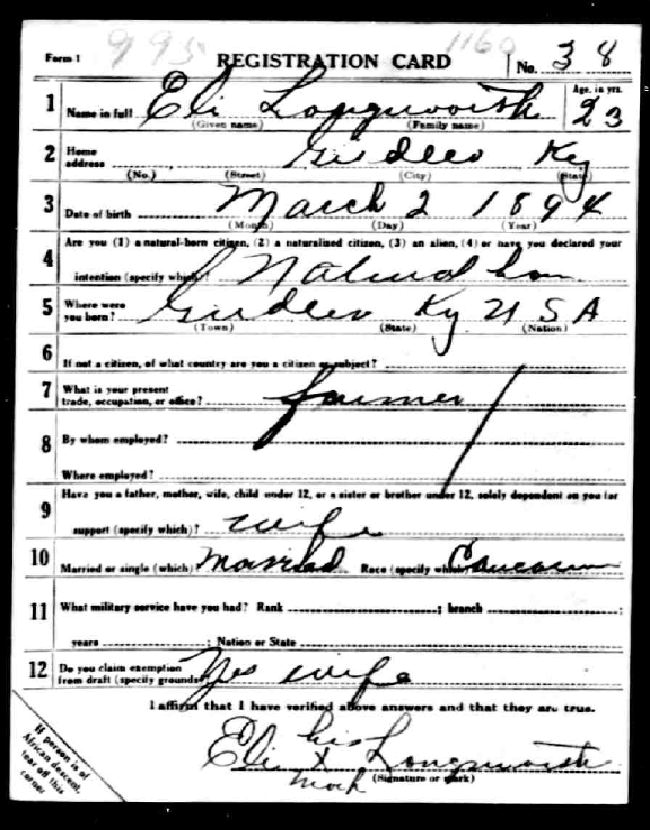 Form 1 995 REGISTRATION CARD 1160 No. 38
1 Name in full Eli Longworth Age, in yrs. 23
(Given name) (Family name)
2 Home address Girdler Ky
(No.) (Street) (City) (State)
3 Date of birth March 2 1894
(Month) (Day) (Year)
4 Are you (1) a natural-born citizen, (2) a naturalized citizen, (3) an alien, (4) or have you declared your
intention (specify which)? Natural born
5 Where were you born? Girdler Ky USA
(Town) (State) (Nation)
6 If not a citizen, of what country are you a citizen or subject?
7 What is your present trade, occupation, or office? farmer
8 By whom employed?
Where employed?
9 Have you a father, mother, wife, child under 12, or a sister or brother under 12, solely dependent on you for
support (specify which)? wife
10 Married or single (which)? Married Race (specify which)? Caucasian
11 What military service have you had? Rank ; branch ;
years ; Nation or State
12 Do you claim exemption from draft (specify grounds)? Yes wife
I affirm that I have verified above answers and that they are true.
his
Eli x Longworth
mark (Signature or mark)
If person is of
African descent,
tear off this
corner.